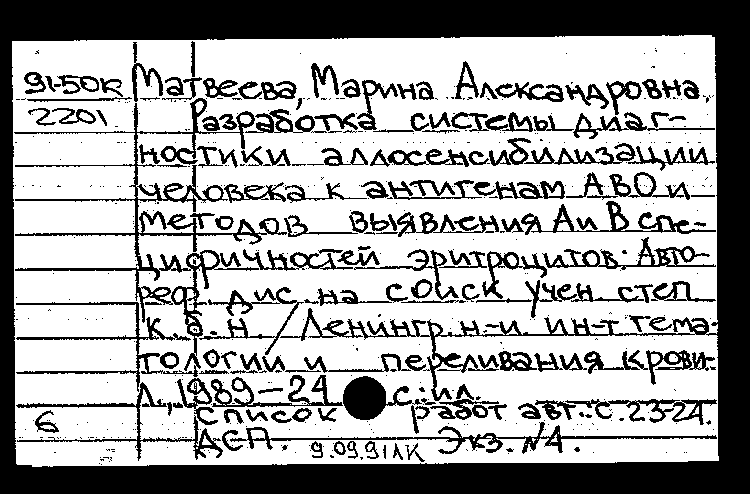 91-50к Матвеева, Марина Александровна.
2201 Разработка системы диаг-
ностики аллосенсибилизации
человека к антигенам АВО и
методов выявления А и В спе-
цифичностей эритроцитов: Авто-
реф. дис. на соиск. учен. степ.
к. б. н. / Ленингр. н-и. ин-т гема-
тологии и переливания крови.-
Л., 1989-24 с.: ил.
6 Список работ авт.: с. 23-24.
ДСП. 9.09.91ЛК Экз. №4.